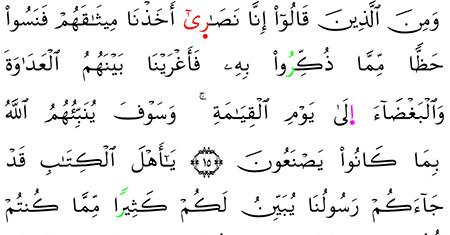 وَمِنَ ٱلَّذِينَ قَالُوٓاْ إِنَّا نَصَٰرِىٰٓ أَخَذْنَا مِيثَٰقَهُمْ فَنَسُواْ
حَظًّا مِّمَّا ذُكِّرُواْ بِهِۦ فَأَغْرَيْنَا بَيْنَهُمُ ٱلْعَدَاوَةَ
وَٱلْبَغْضَآءَ اِلَىٰ يَوْمِ ٱلْقِيَٰمَةِ ۚ وَسَوْفَ يُنَبِّئُهُمُ ٱللَّهُ
بِمَا كَانُواْ يَصْنَعُونَ ١٥ يَٰٓأَهْلَ ٱلْكِتَٰبِ قَدْ
جَآءَكُمْ رَسُولُنَا يُبَيِّنُ لَكُمْ كَثِيرًا مِّمَّا كُنتُمْ